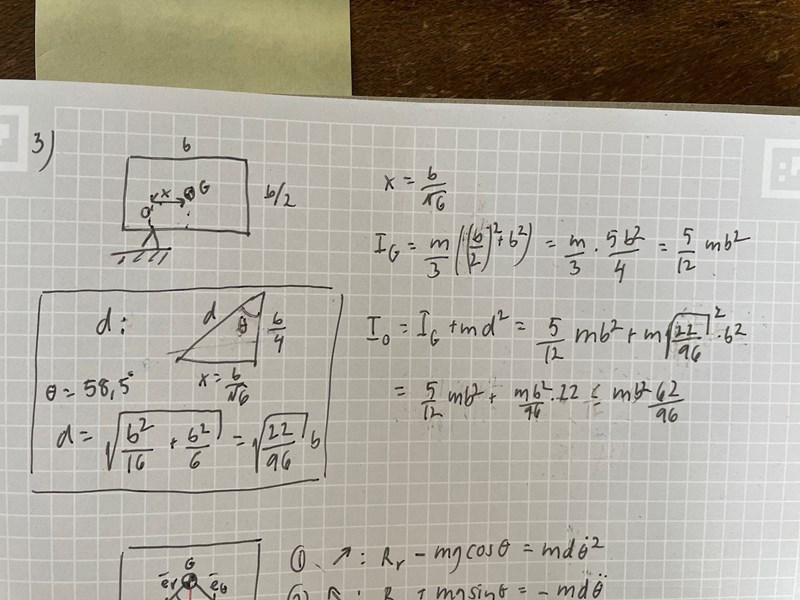 3)
b
x
G
O
b/2
x = b/√6
I_G = m/3 ((b/2)² + b²) = m/3 · 5b²/4 = 5/12 mb²
d:
d
θ
b/4
x = b/√6
θ = 58,5°
d = √(b²/16 + b²/6) = √(22/96) b
I_o = I_G + md² = 5/12 mb² + m√(22/96)² · b²
= 5/12 mb² + mb²/96 · 22 = mb² 62/96
G
ēr
ēθ
①, ↗: Rr - mg cosθ = mdθ̇²
R + mg sinθ = - mdθ̈